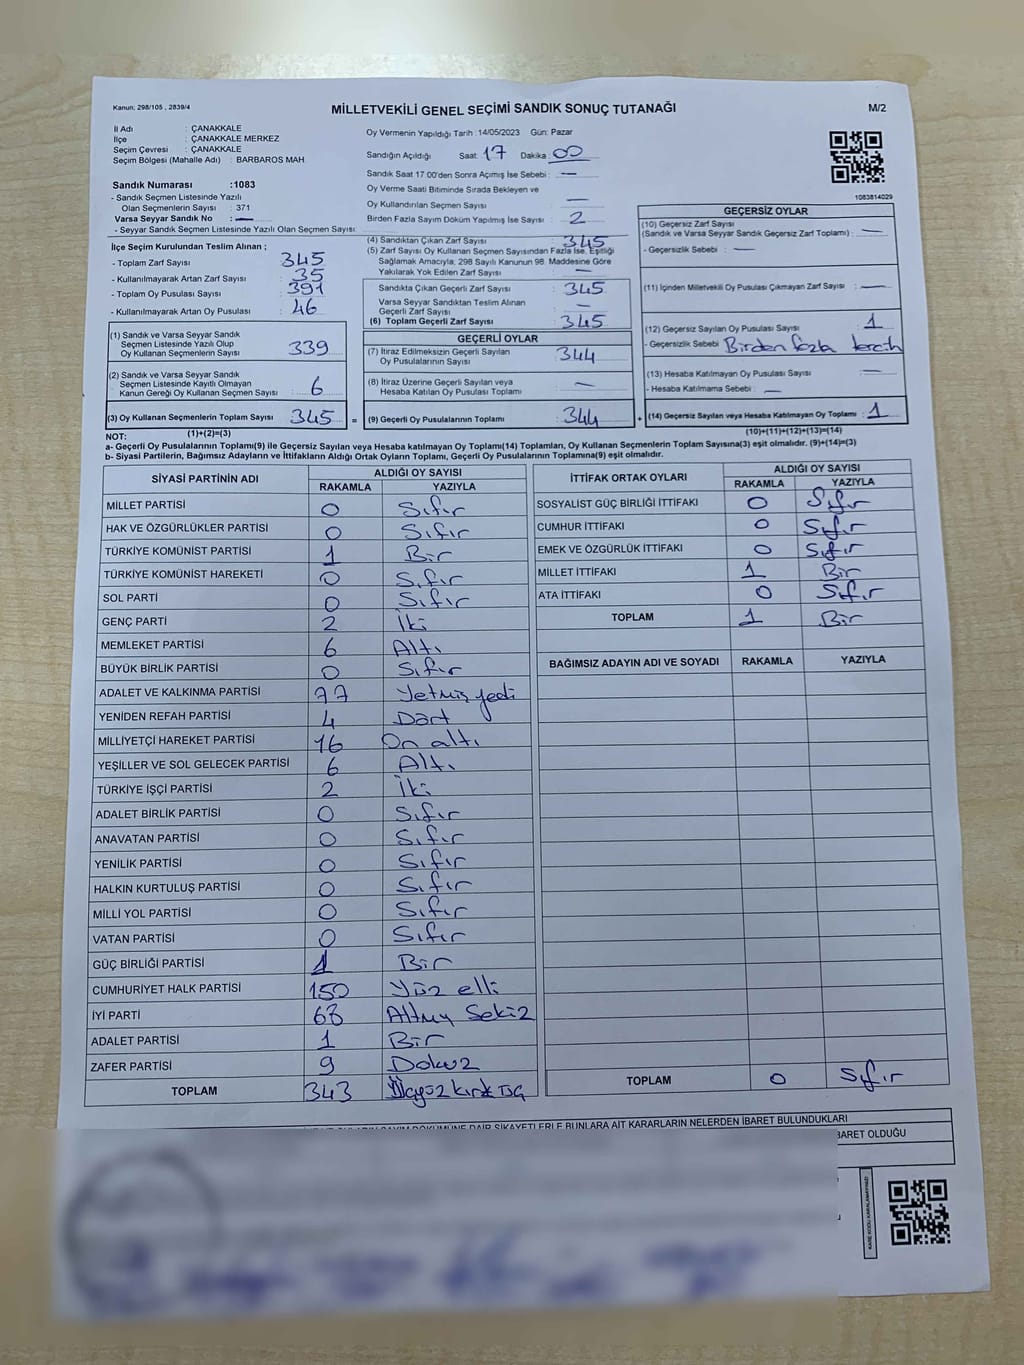 Kanun: 298/105 , 2839/4
MİLLETVEKİLİ GENEL SEÇİMİ SANDIK SONUÇ TUTANAĞI
M/2
İl Adı : ÇANAKKALE
İlçe : ÇANAKKALE MERKEZ
Seçim Çevresi : ÇANAKKALE
Seçim Bölgesi (Mahalle Adı) : BARBAROS MAH.
Oy Vermenin Yapıldığı Tarih :14/05/2023 Gün: Pazar
Sandığın Açıldığı Saat: 17 Dakika: 00
Sandık Saat 17:00'den Sonra Açımış İse Sebebi : —
Oy Verme Saati Bitiminde Sırada Bekleyen ve
Oy Kullandırılan Seçmen Sayısı : —
Birden Fazla Sayım Döküm Yapılmış İse Sayısı : 2
1083814029
Sandık Numarası :1083
- Sandık Seçmen Listesinde Yazılı
Olan Seçmenlerin Sayısı : 371
Varsa Seyyar Sandık No : —
- Seyyar Sandık Seçmen Listesinde Yazılı Olan Seçmen Sayısı:
İlçe Seçim Kurulundan Teslim Alınan ;
- Toplam Zarf Sayısı : 345
- Kullanılmayarak Artan Zarf Sayısı : 35
- Toplam Oy Pusulası Sayısı : 391
- Kullanılmayarak Artan Oy Pusulası : 46
(1) Sandık ve Varsa Seyyar Sandık
Seçmen Listesinde Yazılı Olup
Oy Kullanan Seçmenlerin Sayısı : 339
(2) Sandık ve Varsa Seyyar Sandık
Seçmen Listesinde Kayıtlı Olmayan
Kanun Gereği Oy Kullanan Seçmen Sayısı : 6
(3) Oy Kullanan Seçmenlerin Toplam Sayısı : 345 =
(1)+(2)=(3)
(4) Sandıktan Çıkan Zarf Sayısı : 345
(5) Zarf Sayısı Oy Kullanan Seçmen Sayısından Fazla İse, Eşitliği
Sağlamak Amacıyla, 298 Sayılı Kanunun 98. Maddesine Göre
Yakılarak Yok Edilen Zarf Sayısı : —
Sandıkta Çıkan Geçerli Zarf Sayısı : 345
Varsa Seyyar Sandıktan Teslim Alınan
Geçerli Zarf Sayısı : —
(6) Toplam Geçerli Zarf Sayısı : 345
GEÇERLİ OYLAR
(7) İtiraz Edilmeksizin Geçerli Sayılan
Oy Pusulalarının Sayısı : 344
(8) İtiraz Üzerine Geçerli Sayılan veya
Hesaba Katılan Oy Pusulası Toplamı : —
(9) Geçerli Oy Pusulalarının Toplamı : 344 +
GEÇERSİZ OYLAR
(10) Geçersiz Zarf Sayısı
(Sandık ve Varsa Seyyar Sandık Geçersiz Zarf Toplamı) : —
- Geçersizlik Sebebi : —
(11) İçinden Milletvekili Oy Pusulası Çıkmayan Zarf Sayısı : —
(12) Geçersiz Sayılan Oy Pusulası Sayısı : 1
- Geçersizlik Sebebi : Birden fazla tercih
(13) Hesaba Katılmayan Oy Pusulası Sayısı : —
- Hesaba Katılmama Sebebi : —
(14) Geçersiz Sayılan veya Hesaba Katılmayan Oy Toplamı : 1
(10)+(11)+(12)+(13)=(14)
NOT:
a- Geçerli Oy Pusulalarının Toplamı(9) ile Geçersiz Sayılan veya Hesaba katılmayan Oy Toplamı(14) Toplamları, Oy Kullanan Seçmenlerin Toplam Sayısına(3) eşit olmalıdır. (9)+(14)=(3)
b- Siyasi Partilerin, Bağımsız Adayların ve İttifakların Aldığı Ortak Oyların Toplamı, Geçerli Oy Pusulalarının Toplamına(9) eşit olmalıdır.
SİYASİ PARTİNİN ADI ALDIĞI OY SAYISI
RAKAMLA YAZIYLA
MİLLET PARTİSİ 0 Sıfır
HAK VE ÖZGÜRLÜKLER PARTİSİ 0 Sıfır
TÜRKİYE KOMÜNİST PARTİSİ 1 Bir
TÜRKİYE KOMÜNİST HAREKETİ 0 Sıfır
SOL PARTİ 0 Sıfır
GENÇ PARTİ 2 İki
MEMLEKET PARTİSİ 6 Altı
BÜYÜK BİRLİK PARTİSİ 0 Sıfır
ADALET VE KALKINMA PARTİSİ 77 Yetmiş yedi
YENİDEN REFAH PARTİSİ 4 Dört
MİLLİYETÇİ HAREKET PARTİSİ 16 On altı
YEŞİLLER VE SOL GELECEK PARTİSİ 6 Altı
TÜRKİYE İŞÇİ PARTİSİ 2 İki
ADALET BİRLİK PARTİSİ 0 Sıfır
ANAVATAN PARTİSİ 0 Sıfır
YENİLİK PARTİSİ 0 Sıfır
HALKIN KURTULUŞ PARTİSİ 0 Sıfır
MİLLİ YOL PARTİSİ 0 Sıfır
VATAN PARTİSİ 0 Sıfır
GÜÇ BİRLİĞİ PARTİSİ 1 Bir
CUMHURİYET HALK PARTİSİ 150 Yüz elli
İYİ PARTİ 68 Altmış Sekiz
ADALET PARTİSİ 1 Bir
ZAFER PARTİSİ 9 Dokuz
TOPLAM 343 Üçyüz kırk üç
İTTİFAK ORTAK OYLARI ALDIĞI OY SAYISI
RAKAMLA YAZIYLA
SOSYALİST GÜÇ BİRLİĞİ İTTİFAKI 0 Sıfır
CUMHUR İTTİFAKI 0 Sıfır
EMEK VE ÖZGÜRLÜK İTTİFAKI 0 Sıfır
MİLLET İTTİFAKI 1 Bir
ATA İTTİFAKI 0 Sıfır
TOPLAM 1 Bir
BAĞIMSIZ ADAYIN ADI VE SOYADI RAKAMLA YAZIYLA
TOPLAM 0 Sıfır
SAYIM DÖKÜMÜNE DAİR ŞİKAYETLERLE BUNLARA AİT KARARLARIN NELERDEN İBARET BULUNDUKLARI
İBARET OLDUĞU
KARE KODU KARALAMAYINIZ!